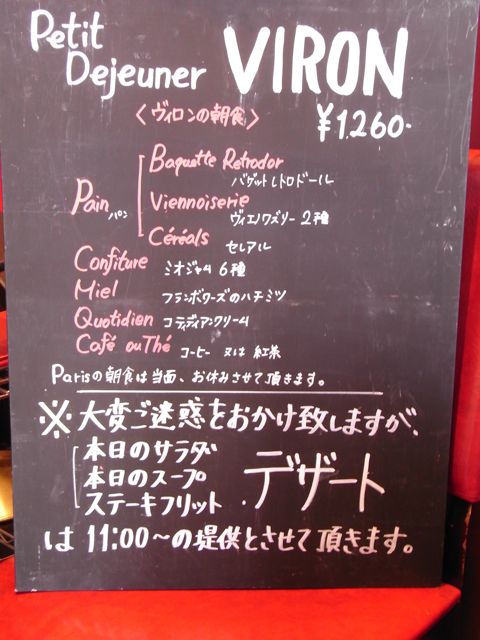 Petit
Dejeuner VIRON
〈ヴィロンの朝食〉 ¥1.260-
Baguette Retrodor
バゲットレトロドール
Pain パン Viennoiserie
ヴィエノワズリー 2種
Céréals セレアル
Confiture ミオジャム 6種
Miel フランボワーズのハチミツ
Quotidien コティディアンクリーム
Café ou Thé コーヒー 又は 紅茶
Parisの朝食は当面、お休みさせて頂きます。
※大変ご迷惑をおかけ致しますが、
本日のサラダ
本日のスープ デザート
ステーキフリット・
は 11:00～の提供とさせて頂きます。